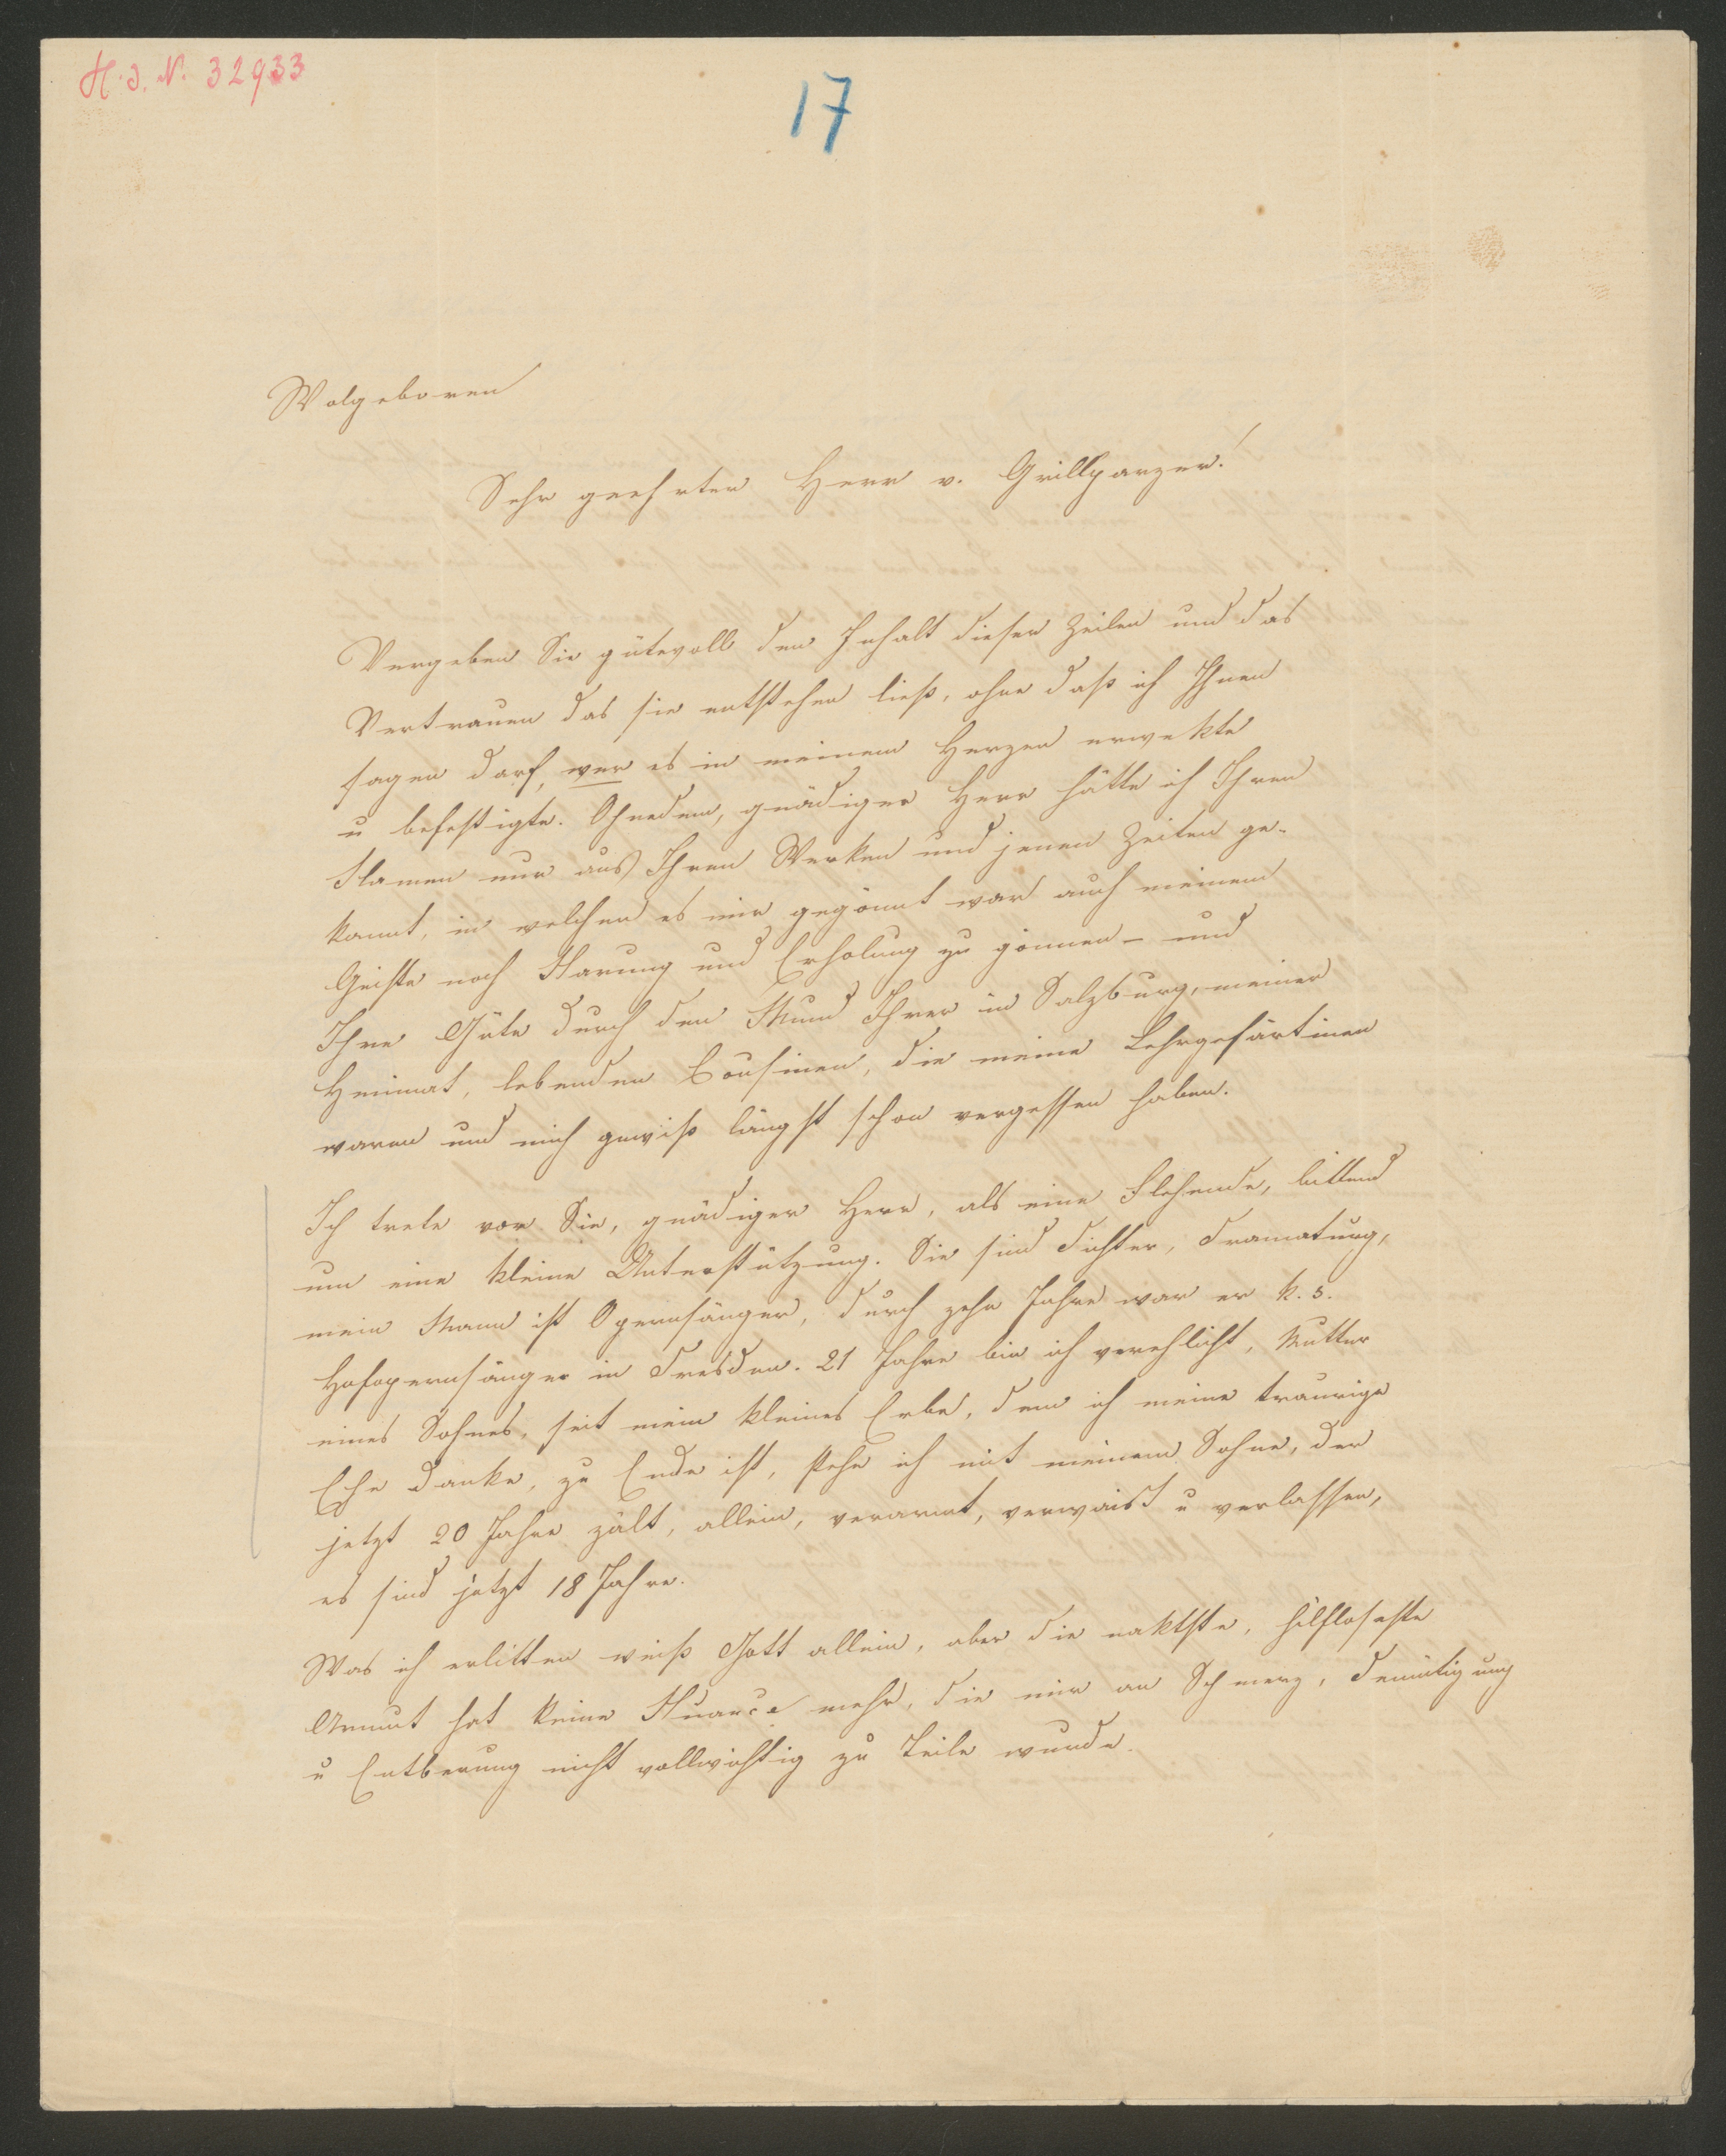 H. I. N. 32933
17
Wolgeboren
Sehr geehrter Herr v. Grillparzer!
Vergeben Sie gütevoll den Inhalt dieser Zeilen und das
Vertrauen das sie entstehen ließ, ohne daß ich Ihnen
sagen darf, wer es in meinem Herzen erwekte
u befestigte. Ohnedem, gnädiger Herr hätte ich Ihren
Namen nur aus Ihren Werken und jenen Zeiten ge-
kannt, in welchen es mir gegönnt war auch meinem
Geiste noch Narung und Erholung zu gönnen – und
Ihre Güte durch den Mund Ihrer in Salzburg, meiner
Heimat, lebenden Cousinen, die meine Lehrgefärtinen
waren und mich gewiß längst schon vergessen haben.
Ich trete vor Sie, gnädiger Herr, als eine Flehende, bittend
um eine kleine Unterstützung. Sie sind Dichter, Dramaturg,
mein Mann ist Opernsänger, durch zehn Jahre war er k. s.
Hofopernsänger in Dresden. 21 Jahre bin ich verehlicht, Mutter
eines Sohnes, seit mein kleines Erbe, dem ich meine traurige
Ehe danke, zu Ende ist, stehe ich mit meinem Sohne, der
jetzt 20 Jahre zält, allein, verarmt, verwaist u verlassen,
es sind jetzt 18 Jahre.
Was ich erlitten weiß Gott allein, aber die naktste, hilfloseste
Armut hat keine Nuance mehr, die mir an Schmerz, Demütigung
u Entberung nicht vollwichtig zu Teile wurde.